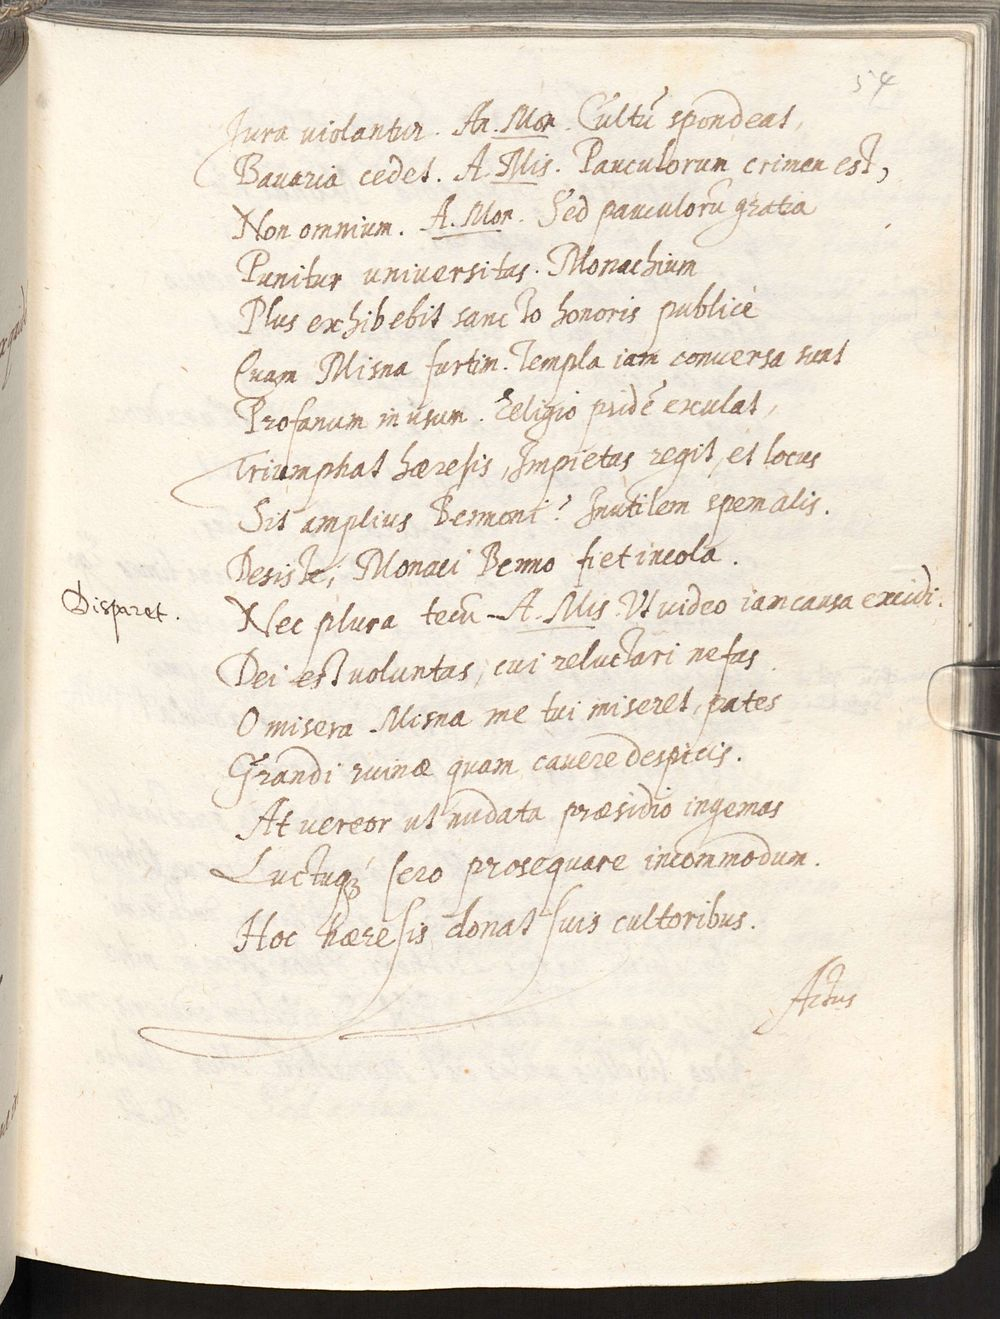 54
Jura violantur. An. Mon. Cultũ spondeat,
Bavaria cedet. A. Mis. Pauculorum crimen est,
Non omnium. A. Mon. Sed pauculorũ gratia
Punitur universitas. Monachium
Plus exhibebit sancto honoris publicè
Quam Misna furtim. Templa iam conversa sunt
Profanum in usum. Religio pridẽ exulat,
Triumphat hæresis, Impietas regit, et locus
Sit amplius Bennoni? Inutilem spem alis.
Desiste, Monaci Benno fiet incola.
Disparet.
Nec plura tecũ A. Mis. Ut video iam causa excidi.
Dei est voluntas, cui reluctari nefas.
O misera Misna me tui miseret, pates
Grandi ruinæ quam cavere despicis.
At vereor ut nudata præsidio ingemas
Luctuq́ꝫ sero prosequare incommodum.
Hoc hæresis donat suis cultoribus.
Actus